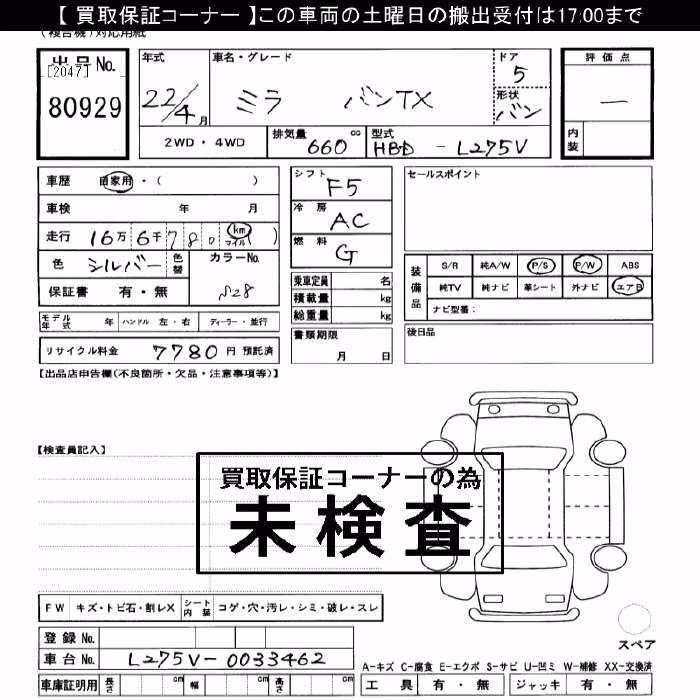 【 買取保証コーナー 】この車両の土曜日の搬出受付は17:00まで
(複合機)対応用紙
出品No.
[2047]
80929
年式
22/4月
車名・グレード
ミラ バンTX
ドア
5
形状
バン
評価点
一
内装
2WD・4WD
排気量
660 cc
型式
HBD - L275V
車歴 自家用・( )
車検 年 月
走行 16万6千780 km マイル ( )
色 シルバー 色替
カラーNo.
S28
保証書 有・無
シフト
F5
冷房
AC
燃料
G
乗車定員 名
積載量 kg
総重量 kg
書類期限
月 日
セールスポイント
装備品
S/R 純A/W P/S P/W ABS
純TV 純ナビ 革シート 外ナビ エアB
ナビ型番:
後日品
モデル年式 年 ハンドル 左・右 ディーラー・並行
リサイクル料金 7780 円 預託済
【出品店申告欄(不良箇所・欠品・注意事項等)】
【検査員記入】
買取保証コーナーの為
未検査
FW キズ・トビ石・割レX シート内装 コゲ・穴・汚レ・シミ・破レ・スレ
登録No.
車台No. L275V-0033462
車庫証明用 長さ cm 幅 cm 高さ cm
スペア
A-キズ C-腐食 E-エクボ S-サビ U-凹ミ W-補修 XX-交換済
工具 有・無 ジャッキ 有・無